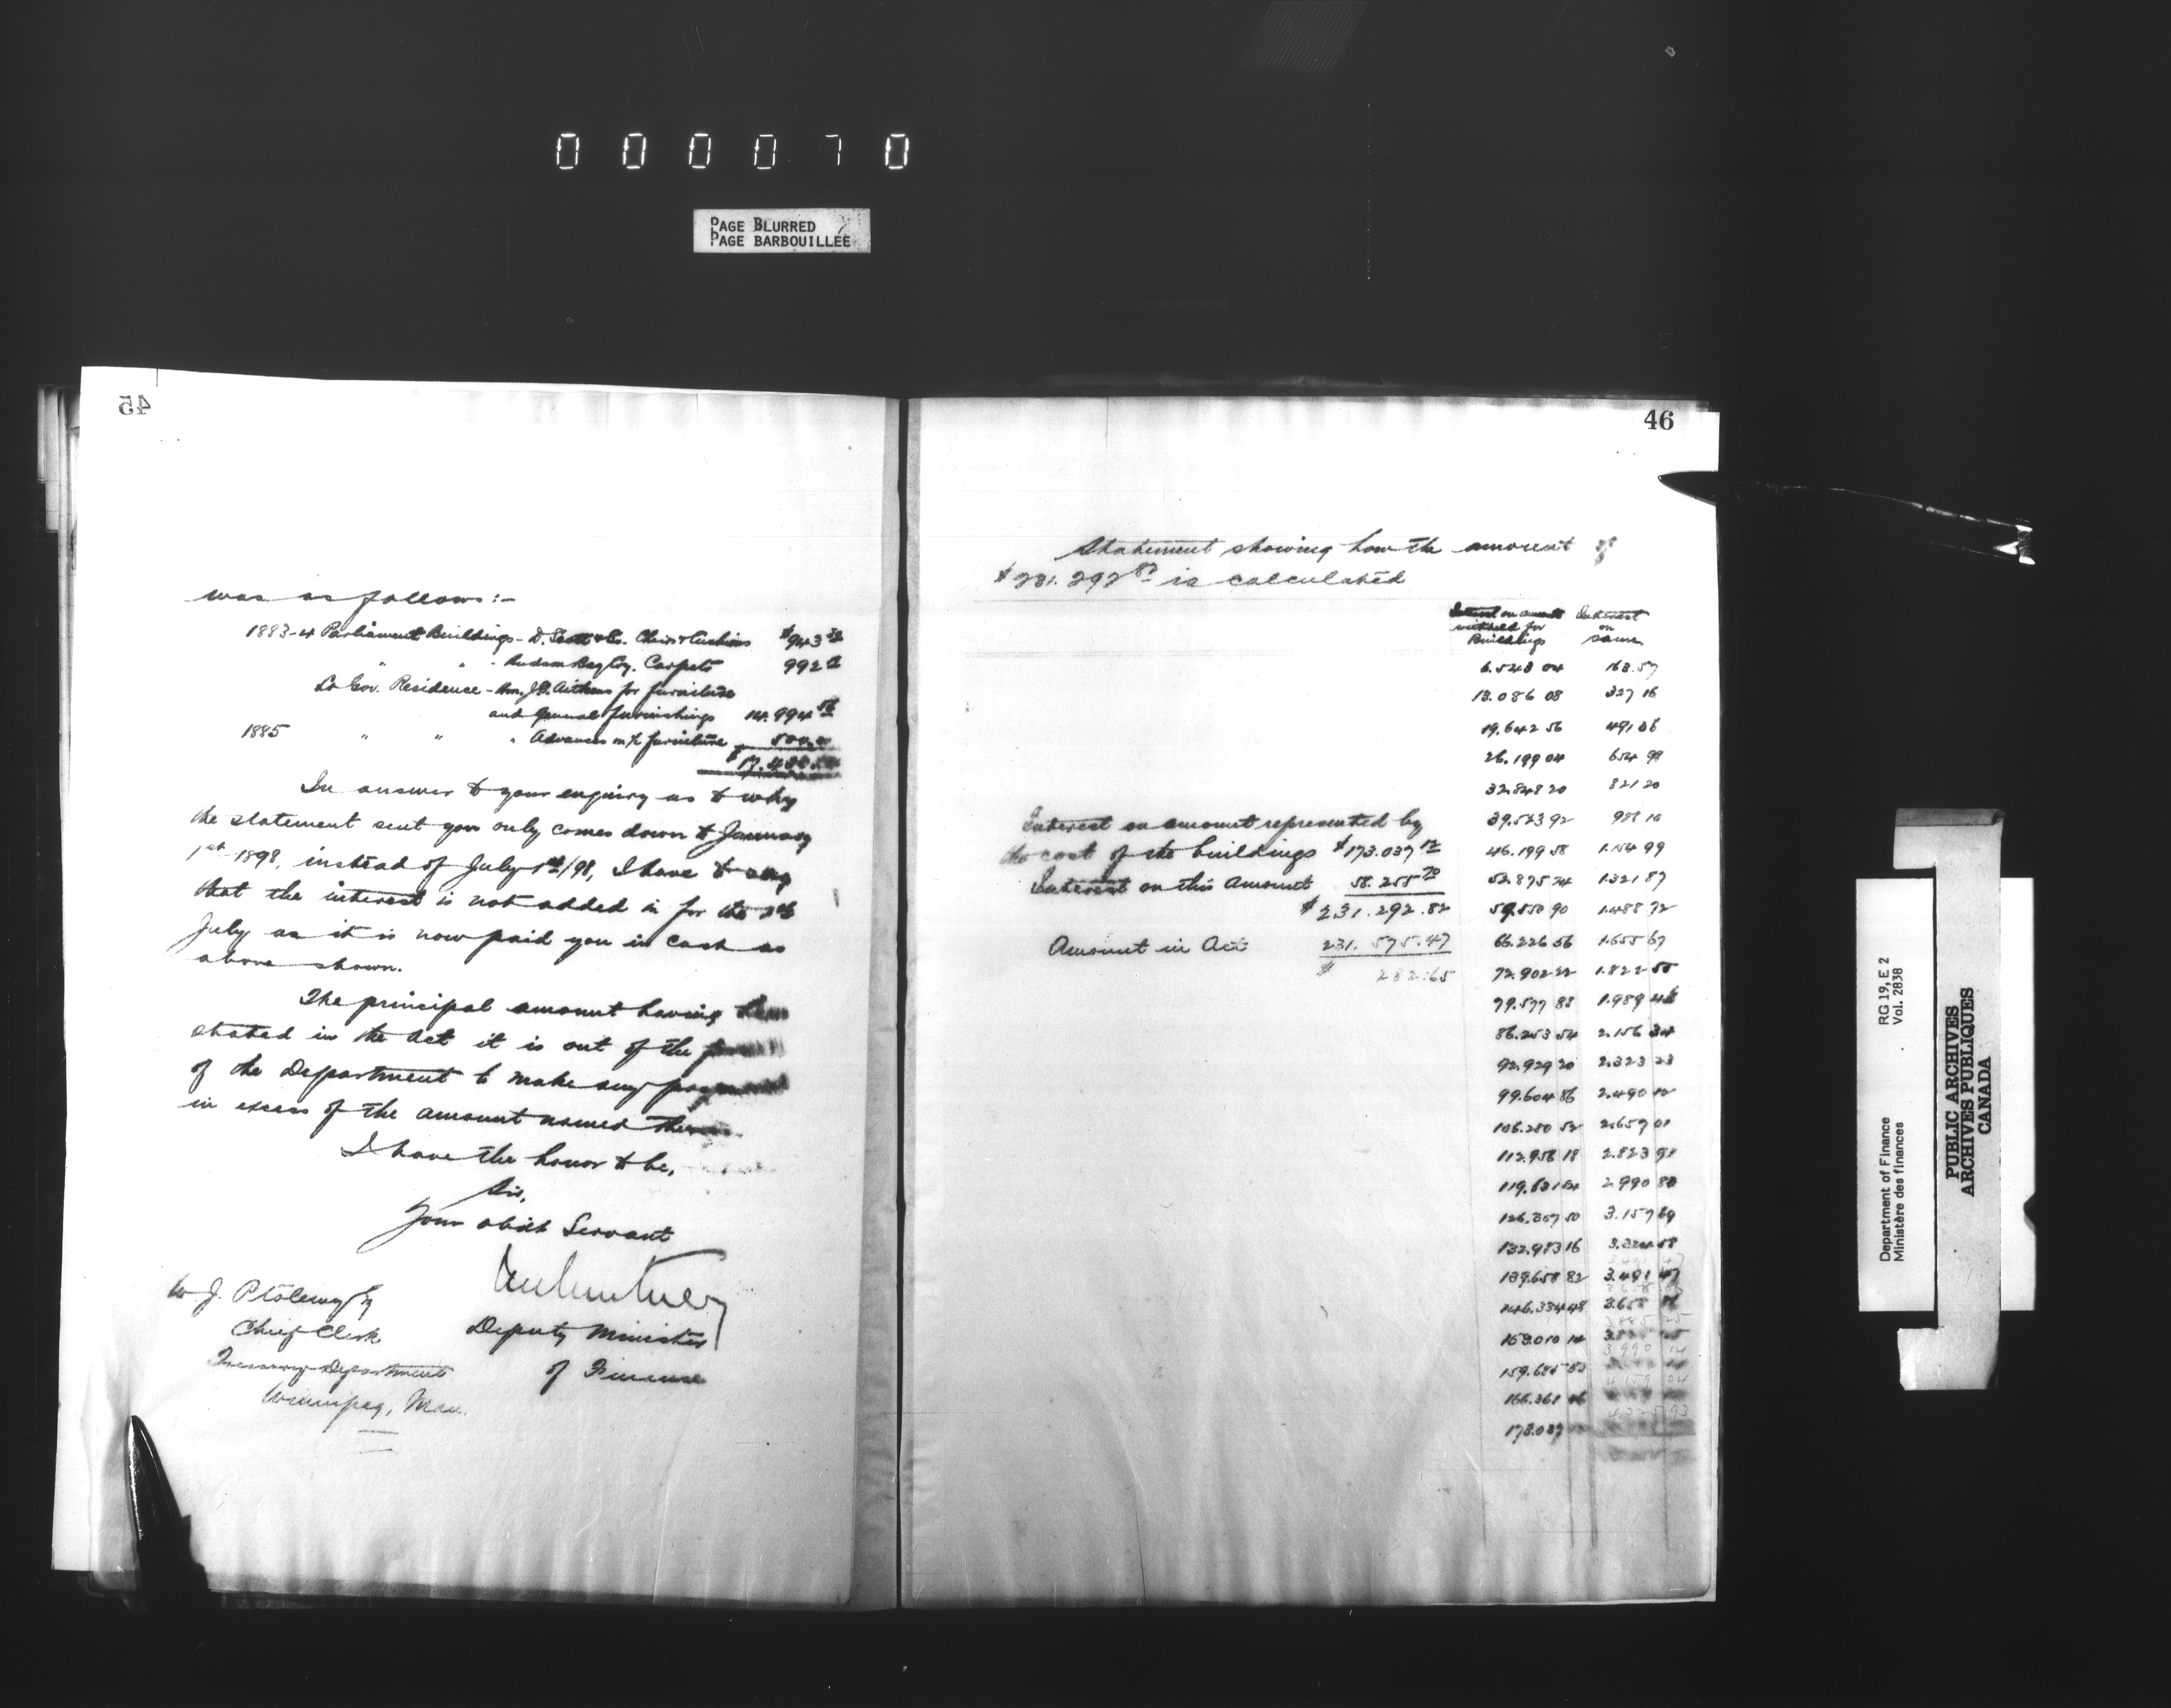 000070
PAGE BLURRED
PAGE BARBOUILLEE
45
was as follows:-
1883-4 Parliament Buildings - D. Scott & Co. Chairs & Cushions $943
" " " Hudson Bay Coy. Carpets 992
Lt Gov. Residence - Hon. J.D. Aitkens for furniture
and general furnishings 14.994 56
1885 " " " Advances on a/c furniture 500.00
In answer to your enquiry as to why
the statement sent you only comes down to January
1st 1898, instead of July 1st/98, I have to say
that the interest is not added in for the
July as it is now paid you in cash as
above shown.
The principal amount having been
stated in the Act it is out of the
of the Department to make any payment
in excess of the amount named
I have the honor to be,
Sir,
Your obdt Servant
Deputy Minister
of Finance
W J. Ptolemy Esq
Chief Clerk
Treasury Department
Winnipeg, Man.
46
Statement showing how the amount of
$231.292 82 is calculated
Interest on amount withheld for Buildings
Interest on same
6.543 04 163.57
13.086 08 327 16
19.642 56 491 06
26.199 04 654 98
32.848 20 821 20
39.523 92 988 10
46.199 58 1.154 99
52.875 24 1.321 87
59.550 90 1.488 72
66.226 56 1.655 67
72.902 22 1.822 55
79.577 88 1.989 45
86.253 54 2.156 34
92.929 20 2.323 23
99.604 86 2.490 12
106.280 52 2.657 01
112.956 18 2.823 91
119.631 84 2.990 80
126.307 50 3.157 69
132.983 16 3.324 58
139.658 82 3.491 47
146.334 48 3.658
153.010 14
159.685 80
166.361 46
173.037
Interest on amount represented by
the cost of the buildings $173.037 12
Interest on this Amount 58.255 70
$231.292.82
Amount in Act 231.575.47
$282.65
Department of Finance RG 19, E 2
Ministère des finances Vol. 2838
PUBLIC ARCHIVES
ARCHIVES PUBLIQUES
CANADA